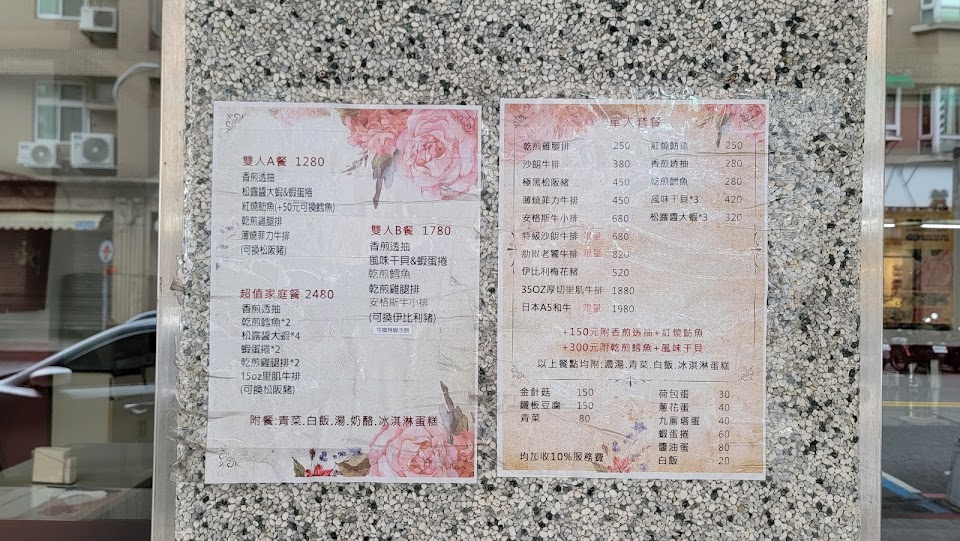 雙人A餐 1280
香煎透抽
松露醬大蝦&蝦蛋捲
紅燒魴魚(+50元可換鱈魚)
乾煎雞腿排
薄燒菲力牛排
(可換松阪豬)
超值家庭餐 2480
香煎透抽
乾煎鱈魚*2
松露醬大蝦*4
蝦蛋捲*2
乾煎雞腿排*2
15oz里肌牛排
(可換松阪豬)
雙人B餐 1780
香煎透抽
風味干貝&蝦蛋捲
乾煎鱈魚
乾煎雞腿排
安格斯牛小排
(可換伊比利豬)
可換特級沙朗
附餐:青菜.白飯.湯.奶酪.冰淇淋蛋糕
單人套餐
乾煎雞腿排 250
沙朗牛排 380
極黑松阪豬 450
薄燒菲力牛排 450
安格斯牛小排 680
特級沙朗牛排 限量 680
肋眼老饕牛排 限量 820
伊比利梅花豬 520
35OZ厚切里肌牛排 1880
日本A5和牛 限量 1980
紅燒魴魚 250
香煎透抽 280
乾煎鱈魚 280
風味干貝*3 420
松露醬大蝦*3 320
+150元附香煎透抽+紅燒魴魚
+300元附乾煎鱈魚+風味干貝
以上餐點均附:濃湯.青菜.白飯.冰淇淋蛋糕
金針菇 150
鐵板豆腐 150
青菜 80
荷包蛋 30
蔥花蛋 40
九層塔蛋 40
蝦蛋捲 60
醬油蛋 80
白飯 20
均加收10%服務費